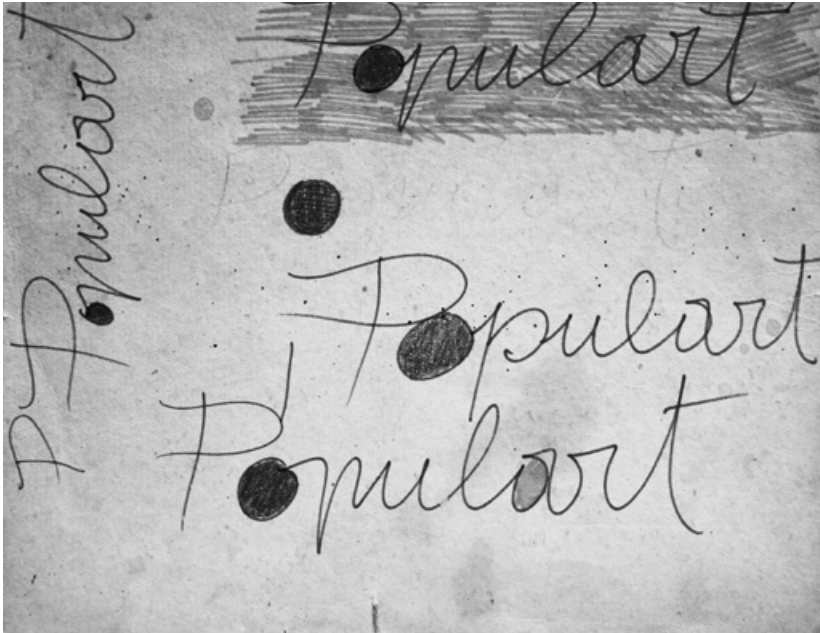 Populart
Populart
Populart
Populart
P